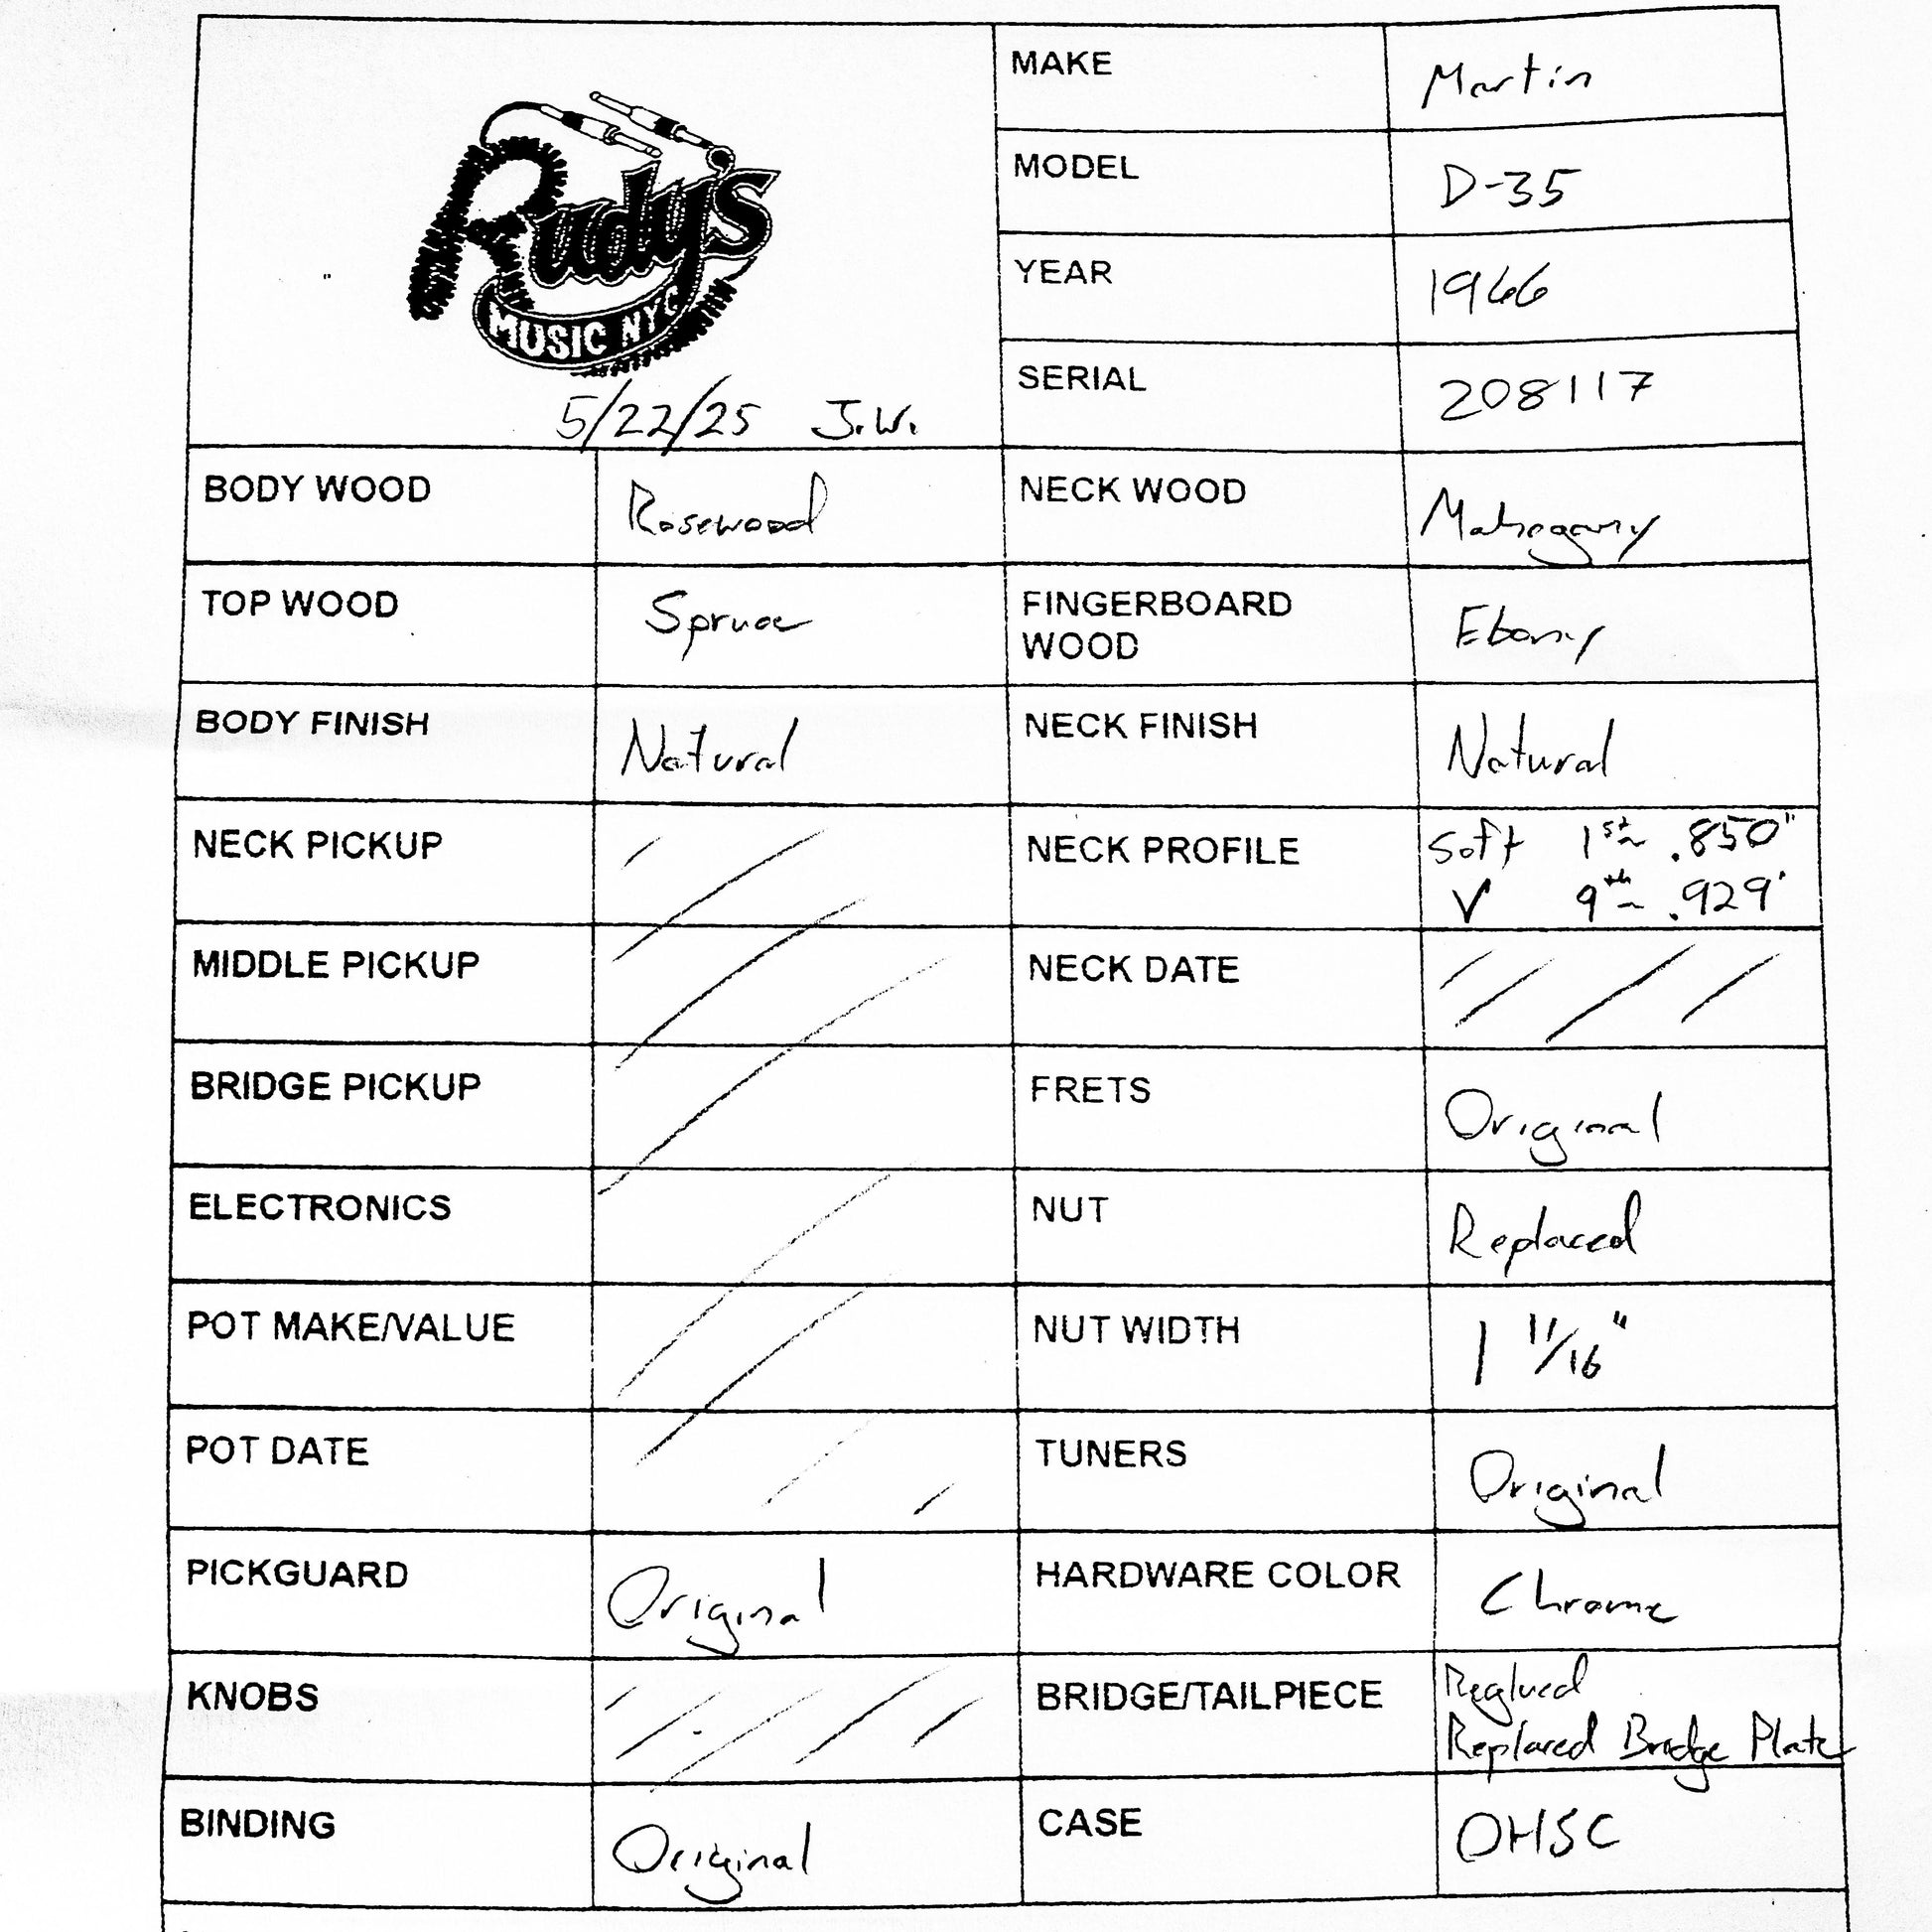 Rudy's
MUSIC NYC
5/22/25 J.W.
MAKE Martin
MODEL D-35
YEAR 1966
SERIAL 208117
BODY WOOD Rosewood NECK WOOD Mahogany
TOP WOOD Spruce FINGERBOARD
WOOD Ebony
BODY FINISH Natural NECK FINISH Natural
NECK PICKUP NECK PROFILE Soft 1st ~ .850"
V 9th ~ .929"
MIDDLE PICKUP NECK DATE
BRIDGE PICKUP FRETS Original
ELECTRONICS NUT Replaced
POT MAKE/VALUE NUT WIDTH 1 11/16"
POT DATE TUNERS Original
PICKGUARD Original HARDWARE COLOR Chrome
KNOBS BRIDGE/TAILPIECE Reglued
Replaced Bridge Plate
BINDING Original CASE OHSC